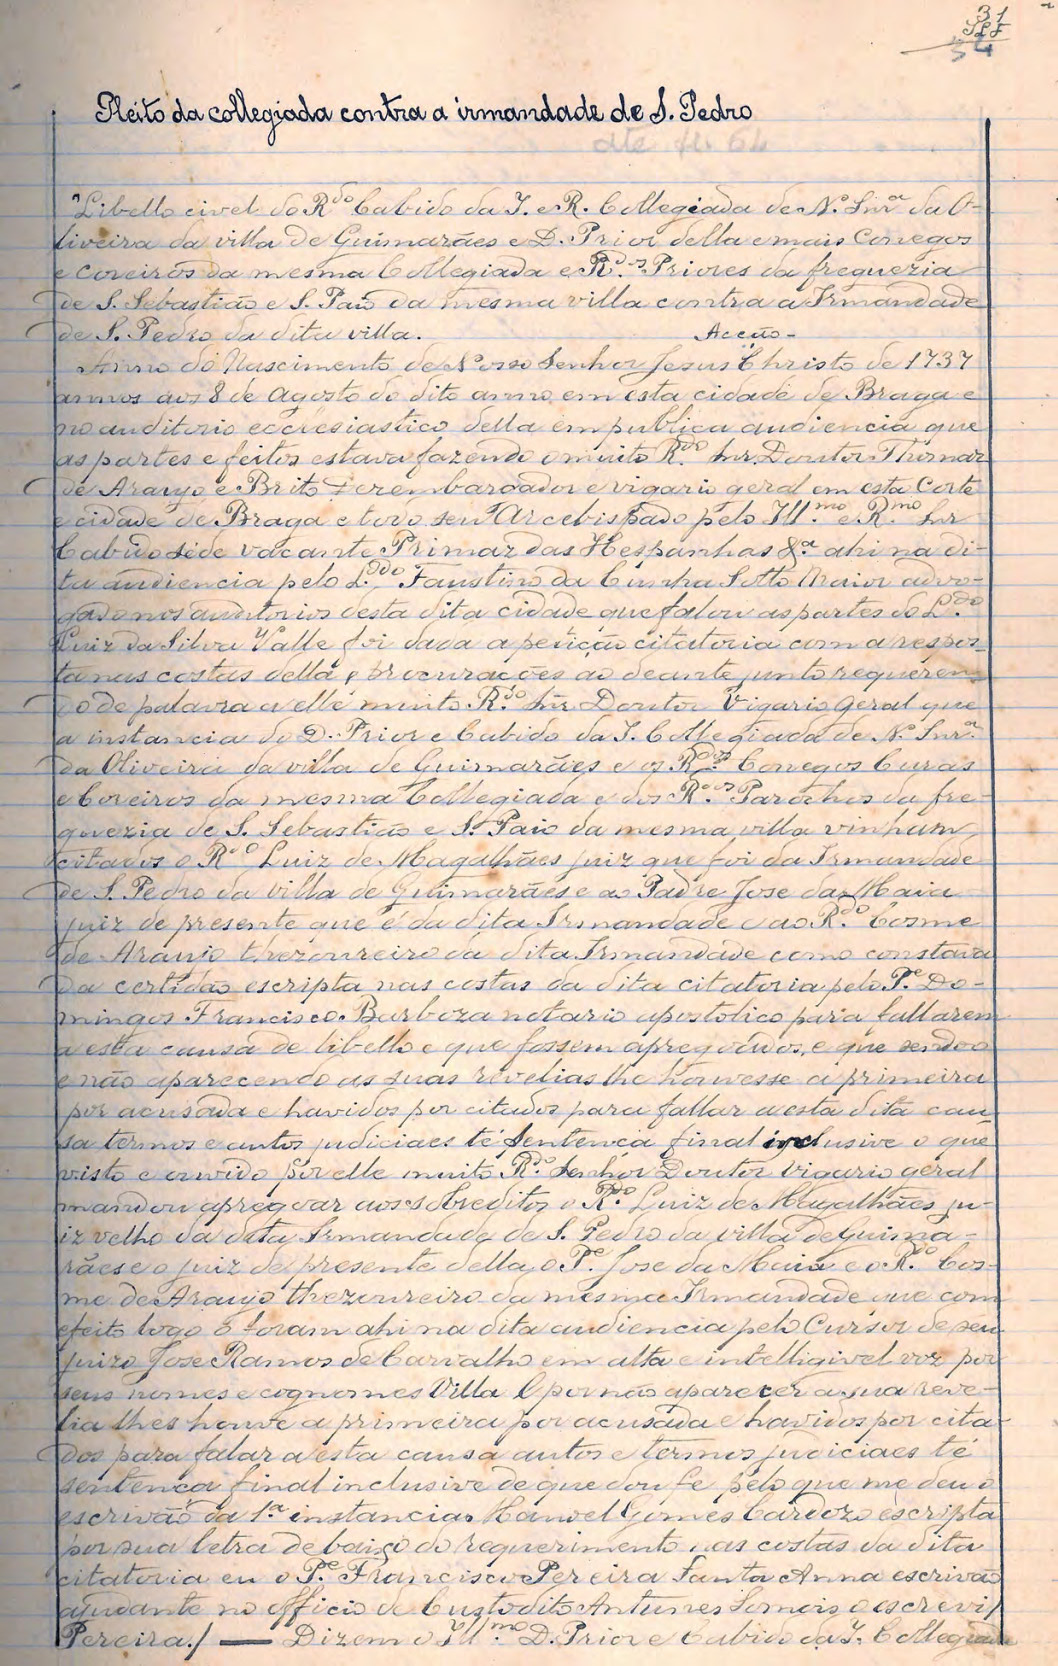 31
34
Pleito da collegiada contra a irmandade de S. Pedro
até fl. 64
Libello civel do Rdo Cabido da I. e R. Collegiada de N. Snra da O-
liveira da villa de Guimarães e D. Prior della e mais Conegos
e coreiros da mesma Collegiada e Rdos Priores da freguezia
de S. Sebastião e S. Paio da mesma villa contra a Irmandade
de S. Pedro da dita villa. Acção -
Anno do Nascimento de Nosso Senhor Jesus Christo de 1737
annos aos 8 de Agosto do dito anno em esta cidade de Braga e
no auditorio ecclesiastico della em publica audiencia que
as partes e feitos estava fazendo o muito Rdo Snr. Doutor Thomaz
de Araujo e Brito Dezembargador e vigario geral em esta Corte
e cidade de Braga e todo seu Arcebispado pelo Illmo e Rmo Snr
Cabido séde vacante Primaz das Hespanhas &a ahi na di-
ta audiencia pelo Ldo Faustino da Cunha Sotto Maior advo-
gado nos auditorios desta dita cidade que falou as partes do Ldo
Luiz da Silva Valle foi dada a petição citatoria com a respos-
ta nas costas della e procurações ao deante junto requeren-
do de palavra a elle muito Rdo Snr Doutor Vigario geral que
a instancia do D. Prior e Cabido da I. Collegiada de N. Snra
da Oliveira da villa de Guimarães e os Rdos Conegos Curas
e Coreiros da mesma Collegiada e dos Rdos Parochos da fre-
guezia de S. Sebastião e S. Paio da mesma villa vinham
citados o Rdo Luiz de Magalhães juiz que foi da Irmandade
de S. Pedro da villa de Guimarães e ao Padre Jose da Maia
juiz de presente que é da dita Irmandade e ao Rdo Cosme
de Araujo thezoureiro da dita Irmandade como constava
da certidão escripta nas costas da dita citatoria pelo Pe Do-
mingos Francisco Barboza notario apostolico para fallarem
a esta causa de libello e que fossem apregoados, e que sendo o
e não aparecendo as suas revelias lhe houvesse a primeira
por acusada e havidos por citados para fallar a esta dita cau-
sa termos e autos judiciaes té sentença final inclusive o que
visto e ouvido por elle muito Rdo Senhor Doutor Vigario geral
mandou apregoar aos sobreditos o Rdo Luiz de Magalhães ju-
iz velho da dita Irmandade de S. Pedro da villa de Guima-
rães e o juiz de presente della o Pe. Jose da Maia e o Rdo Cos-
me de Araujo thezoureiro da mesma Irmandade que com
efeito logo o foram ahi na dita audiencia pelo Cursor de seu
juizo Jose Ramos de Carvalho em alta e intelligivel voz por
seus nomes e cognomes Villa e por não aparecer a sua reve-
lia lhes houve a primeira por acusada e havidos por cita-
dos para falar a esta causa autos e termos judiciaes té
sentença final inclusive de que dou fe pelo que me deu o
escrivão da 1a instancia Manoel Gomes Cardozo escripta
por sua letra debaixo do requerimento nas costas da dita
citatoria eu o Pe. Francisco Pereira Santa Anna escrivão
ajudante no officio de Custodio Antunes o escrevi /
Pereira. / — Dizem o Illmo D. Prior e Cabido da I. Collegiada